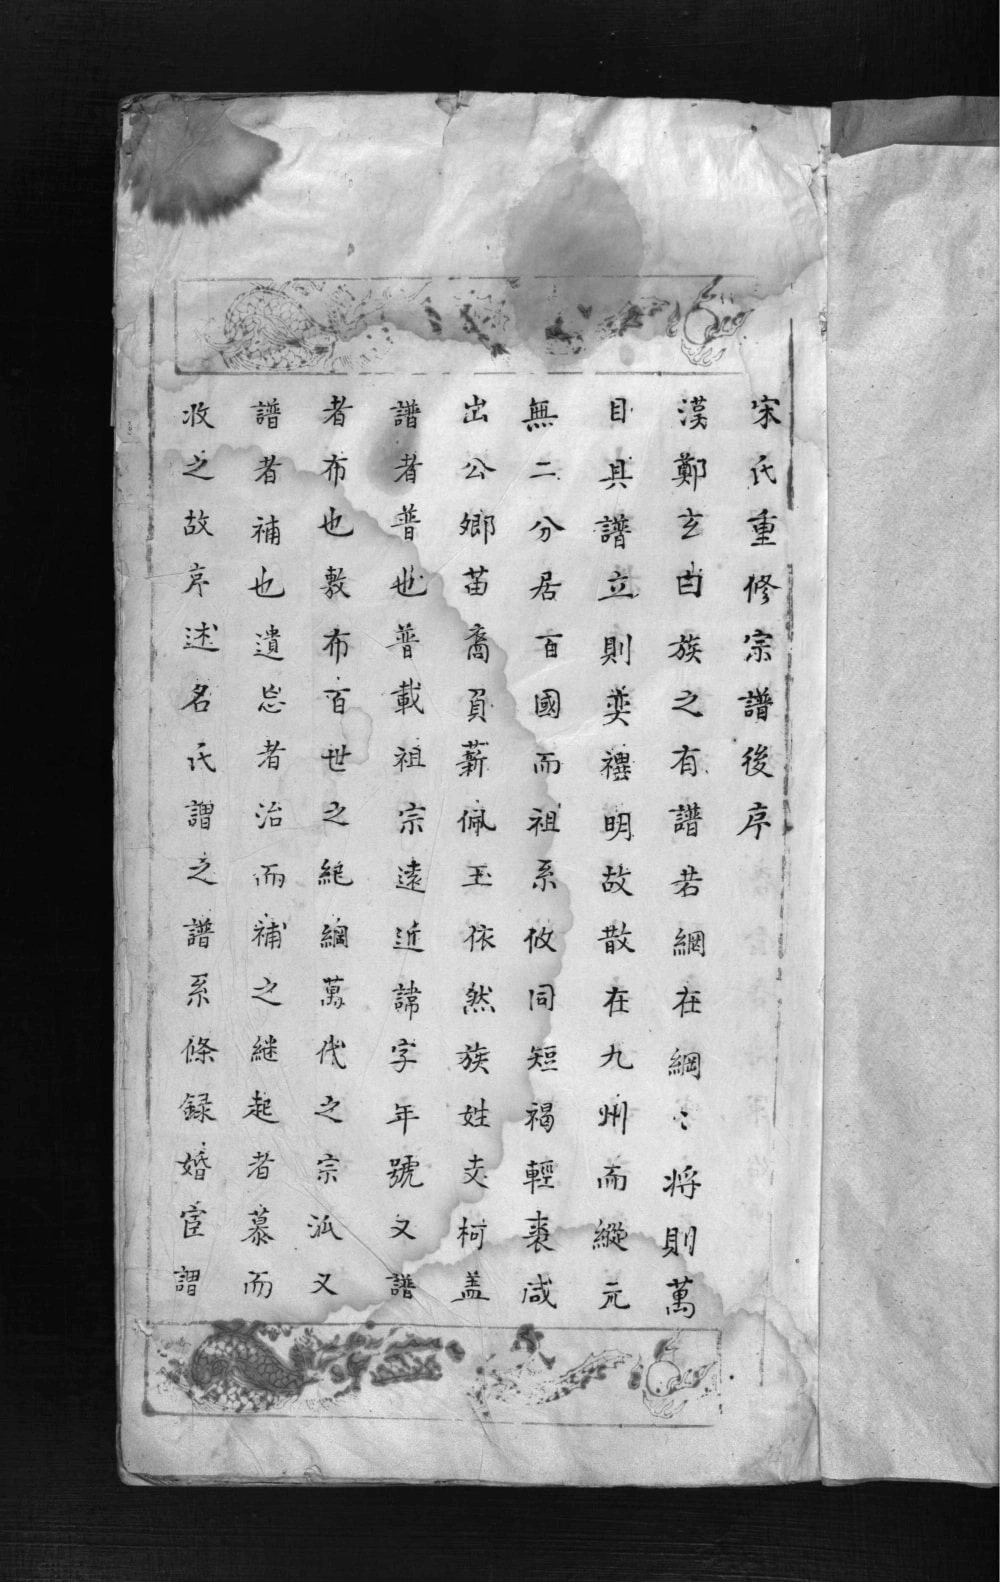 宋氏重修宗譜後序
漢鄭玄曰族之有譜若網在綱〻将則萬
目具譜立則奕禩明故散在九州而縱元
無二分居百國而祖系攸同短褐輕裘咸
出公鄉苗裔負薪佩玉依然族姓支柯盖
譜者普也普載祖宗遠近諱字年號又譜
者布也敷布百世之紀綱萬代之宗派又
譜者補也遺忘者治而補之継起者慕而
收之故序述名氏謂之譜系條録婚宦謂